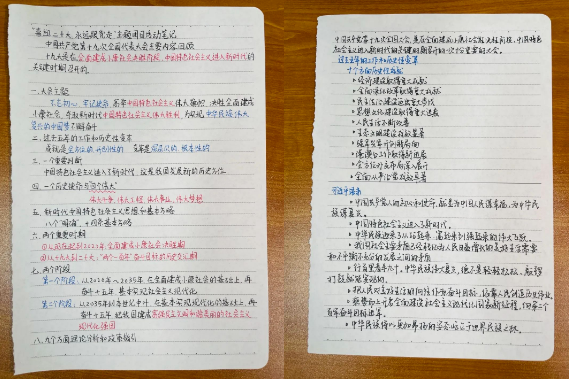 "喜迎二十大,永远跟党走"主题团日活动笔记
中国共产党第十九次全国代表大会主要内容回顾
十九大是在全面建成小康社会决胜阶段、中国特色社会主义进入新时代的
关键时期召开的
一、大会主题
不忘初心,牢记使命,高举中国特色社会主义伟大旗帜,决胜全面建成
小康社会,夺取新时代中国特色社会主义伟大胜利,为实现中华民族伟大
复兴的中国梦不懈奋斗
二、过去五年的工作和历史性变革
成就是全方位的、开创性的 变革是深层次的、根本性的
三、一个重要判断
中国特色社会主义进入了新时代,这是我国发展新的历史方位
四、一个历史使命与"四个伟大"
伟大斗争,伟大工程,伟大事业,伟大梦想
五、新时代中国特色社会主义思想和基本方略
八个"明确",十四条基本方略
六、两个重要时期
①从现在到2020年,全面建成小康社会决胜期
②从十九大到二十大,"两个一百年"奋斗目标的历史交汇期
七、两个阶段
第一个阶段:从2020年~2035年,在全面建成小康社会的基础上,再
奋斗十五年,基本实现社会主义现代化
第二个阶段:从2035年到本世纪中叶,在基本实现现代化的基础上,再
奋斗十五年,把我国建成富强民主文明和谐美丽的社会主义
现代化强国
八、九个方面理论分析和政策指引
中国共产党第十九次全国大会,是在全面建成小康社会决胜阶段、中国特色
社会主义进入新时代的关键时期召开的一次十分重要的大会。
过去五年的工作和历史性变革
十个方面历史性成就
• 经济建设取得重大成就
• 全面深化改革取得重大突破
• 民主法治建设迈出重大步伐
• 思想文化建设取得重大进展
• 人民生活不断改善
• 生态文明建设成效显著
• 强军兴军开创新局面
• 港澳台工作取得新进展
• 全方位外交布局深入展开
• 全面从严治党成效显著
• 中国共产党人的初心和使命,就是为中国人民谋幸福,为中华民
族谋复兴。
• 中国特色社会主义进入了新时代。
• 中华民族迎来了从站起来、富起来到强起来的伟大飞跃。
• 我国社会主要矛盾已经转化为人民日益增长的美好生活需要
和不平衡不充分的发展之间的矛盾
• 行百里者半九十。中华民族伟大复兴,绝不是轻轻松松、敲锣
打鼓就能实现的。
• 把人民对美好生活的向往作为奋斗目标,依靠人民创造历史伟业。
百年奋斗目标进军。
• 中华民族将以更加昂扬的姿态屹立于世界民族之林。